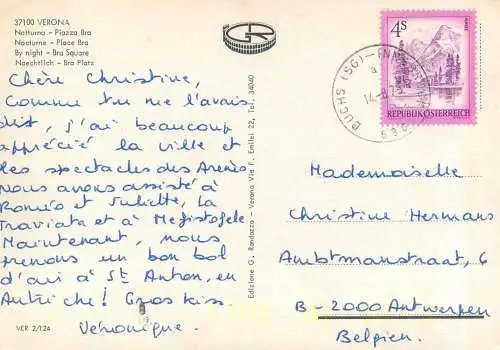 37100 VERONA
Notturno - Piazza Bra
Nocturne - Place Bra
By night - Bra Square
Naechtlich - Bra Platz
Chère Christine,
Comme tu me l'avais
dit, j'ai beaucoup
apprécié la ville et
les spectacles des Arènes
Nous avons assisté à
Roméo et Juliette, la
Traviata et à Mefistofele
Maintenant, nous
prenons un bon bol
d'air à St Anton, en
Autriche! Gros kiss.
Véronique.
VER 2/124
Edizione G. Randazzo - Verona Via F. Emilei 22, Tel. 34040
GR
4S
REPUBLIK ÖSTERREICH
BUCHS (SG)
a
14-8
Mademoiselle
Christine Hermans
Ambtmanstraat, 6
B-2000 Antwerpen
Belgien.